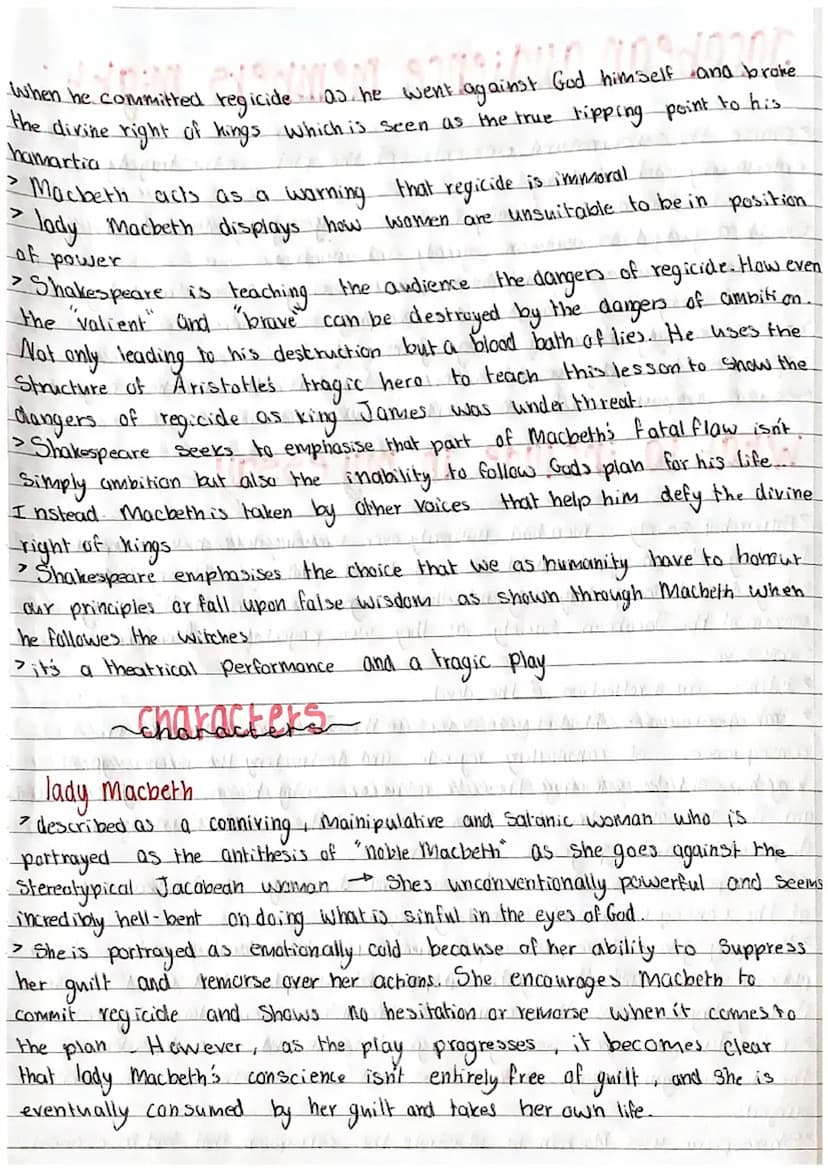 When he committed regicide as he went against God himself and broke
the divine right of kings which is seen as the true tipping point to his
hamartia
> Macbeth acts as a warning that regicide is immoral
> lady Macbeth displays how women are unsuitable to be in position
of power
> Shakespeare is teaching the audience the dangers of regicide. How even
the "valient" and "brave" can be destroyed by the dangers of ambition.
Not only leading to his destruction but a blood bath of lies. He uses the
Structure of Aristotle's tragic hero to teach this lesson to show the
dangers of regicide as King James was under threat.
> Shakespeare seeks to emphasise that part of Macbeth's fatal flaw isn't
Simply ambition but also the inability to follow Gods plan for his life...
Instead Macbeth is taken by other voices that help him defy the divine
right of kings
> Shakespeare emphasises the choice that we as humanity have to honour
our principles or fall upon false wisdom as shown through Macbeth when
he followes the witches
> it's a theatrical performance and a tragic play
characters
~characters~
lady Macbeth
> described as a conniving, Mainipulative and Satanic woman who is
portrayed as the antithesis of "noble Macbeth" as she goes against the
Stereotypical Jacobean woman → Shes unconventionally powerful and seems
incredibly hell-bent on doing what is sinful in the eyes of God.
> She is portrayed as emotionally cold because of her ability to suppress
her guilt and remorse over her actions. She encourages Macbeth to
commit regicide and shows no hesitation or remorse when it comes to
the plan. However, as the play progresses, it becomes clear
that lady Macbeth's conscience isn't entirely free of guilt, and she is
eventually consumed by her guilt and takes her own life.